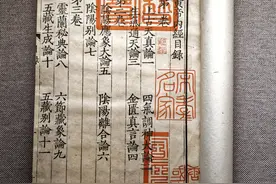 內經目錄
天真論一 四氣調神大論二
通天論三 金匱真言論四
陰陽應象大論五 陰陽離合論六
陰陽別論七
第三卷
靈蘭秘典論八 六節藏象論九
五藏生成論十 五藏別論十